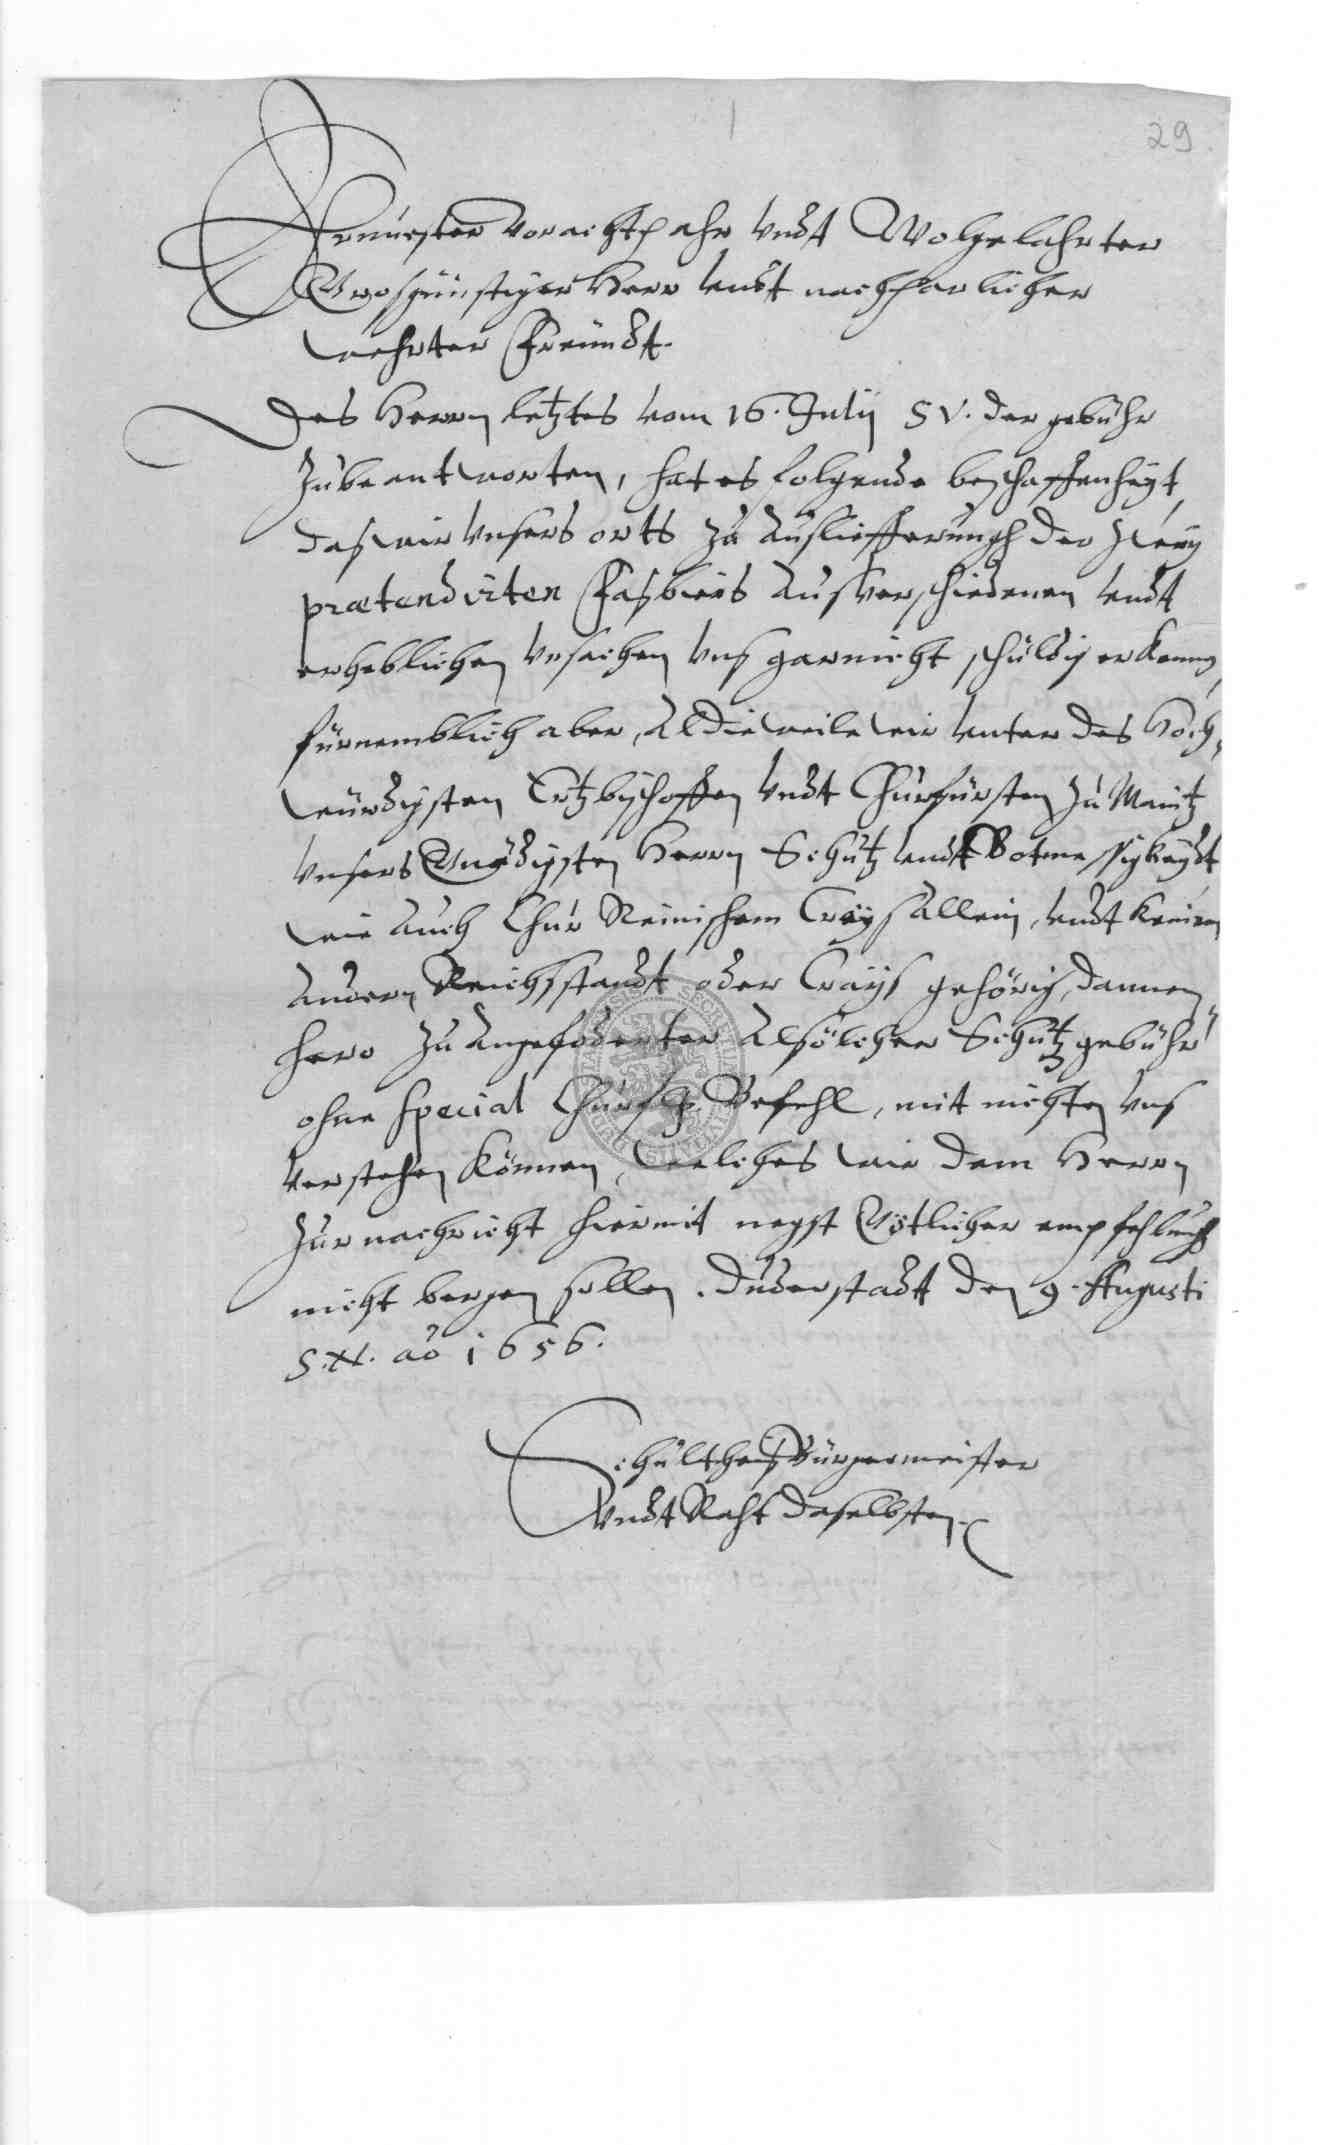 29
Ernuester Vorachtpahr Vndt Wolgelahrter
Grosgünstiger Herr Vndt nachbarlicher
wehrter Freündt.
Des Herrn letztes vom 16. Julij S V. der gebühr
Zubeantworten, hat es folgende beschaffenheyt,
das wir Vnsers orts zu Auslieffrungh der
prætendirten Fasbiers Aus verschiedenen Vndt
erheblichen Vrsachen Vns garnicht schuldig erkennen,
fürnemblich aber, Aldieweile wir Vnter des Hoch-
würdigsten Ertzbischoffen Vndt Churfürsten zu Maintz
Vnsers Gnädigsten Herrn Schutz Vndt Botmessigkeydt
wie Auch Chur Reinischem Crays Allein, Vndt keinem
Andern Reichsstandt oder Crays gehörig, dannen-
hero zu Angefoderter Alsölcher Schutzgebühr
ohne special Churfl. Befehl, mit nichten Vns
Verstehen Können, welches wir dem Herrn
Zur nachricht hiermit negst Götlicher empfehlungh
nicht bergen sollen. Duderstadt den 9. Augusti
S.N. ao 1656.
Schultheis Bürgermeister
Vndt Raht daselbsten